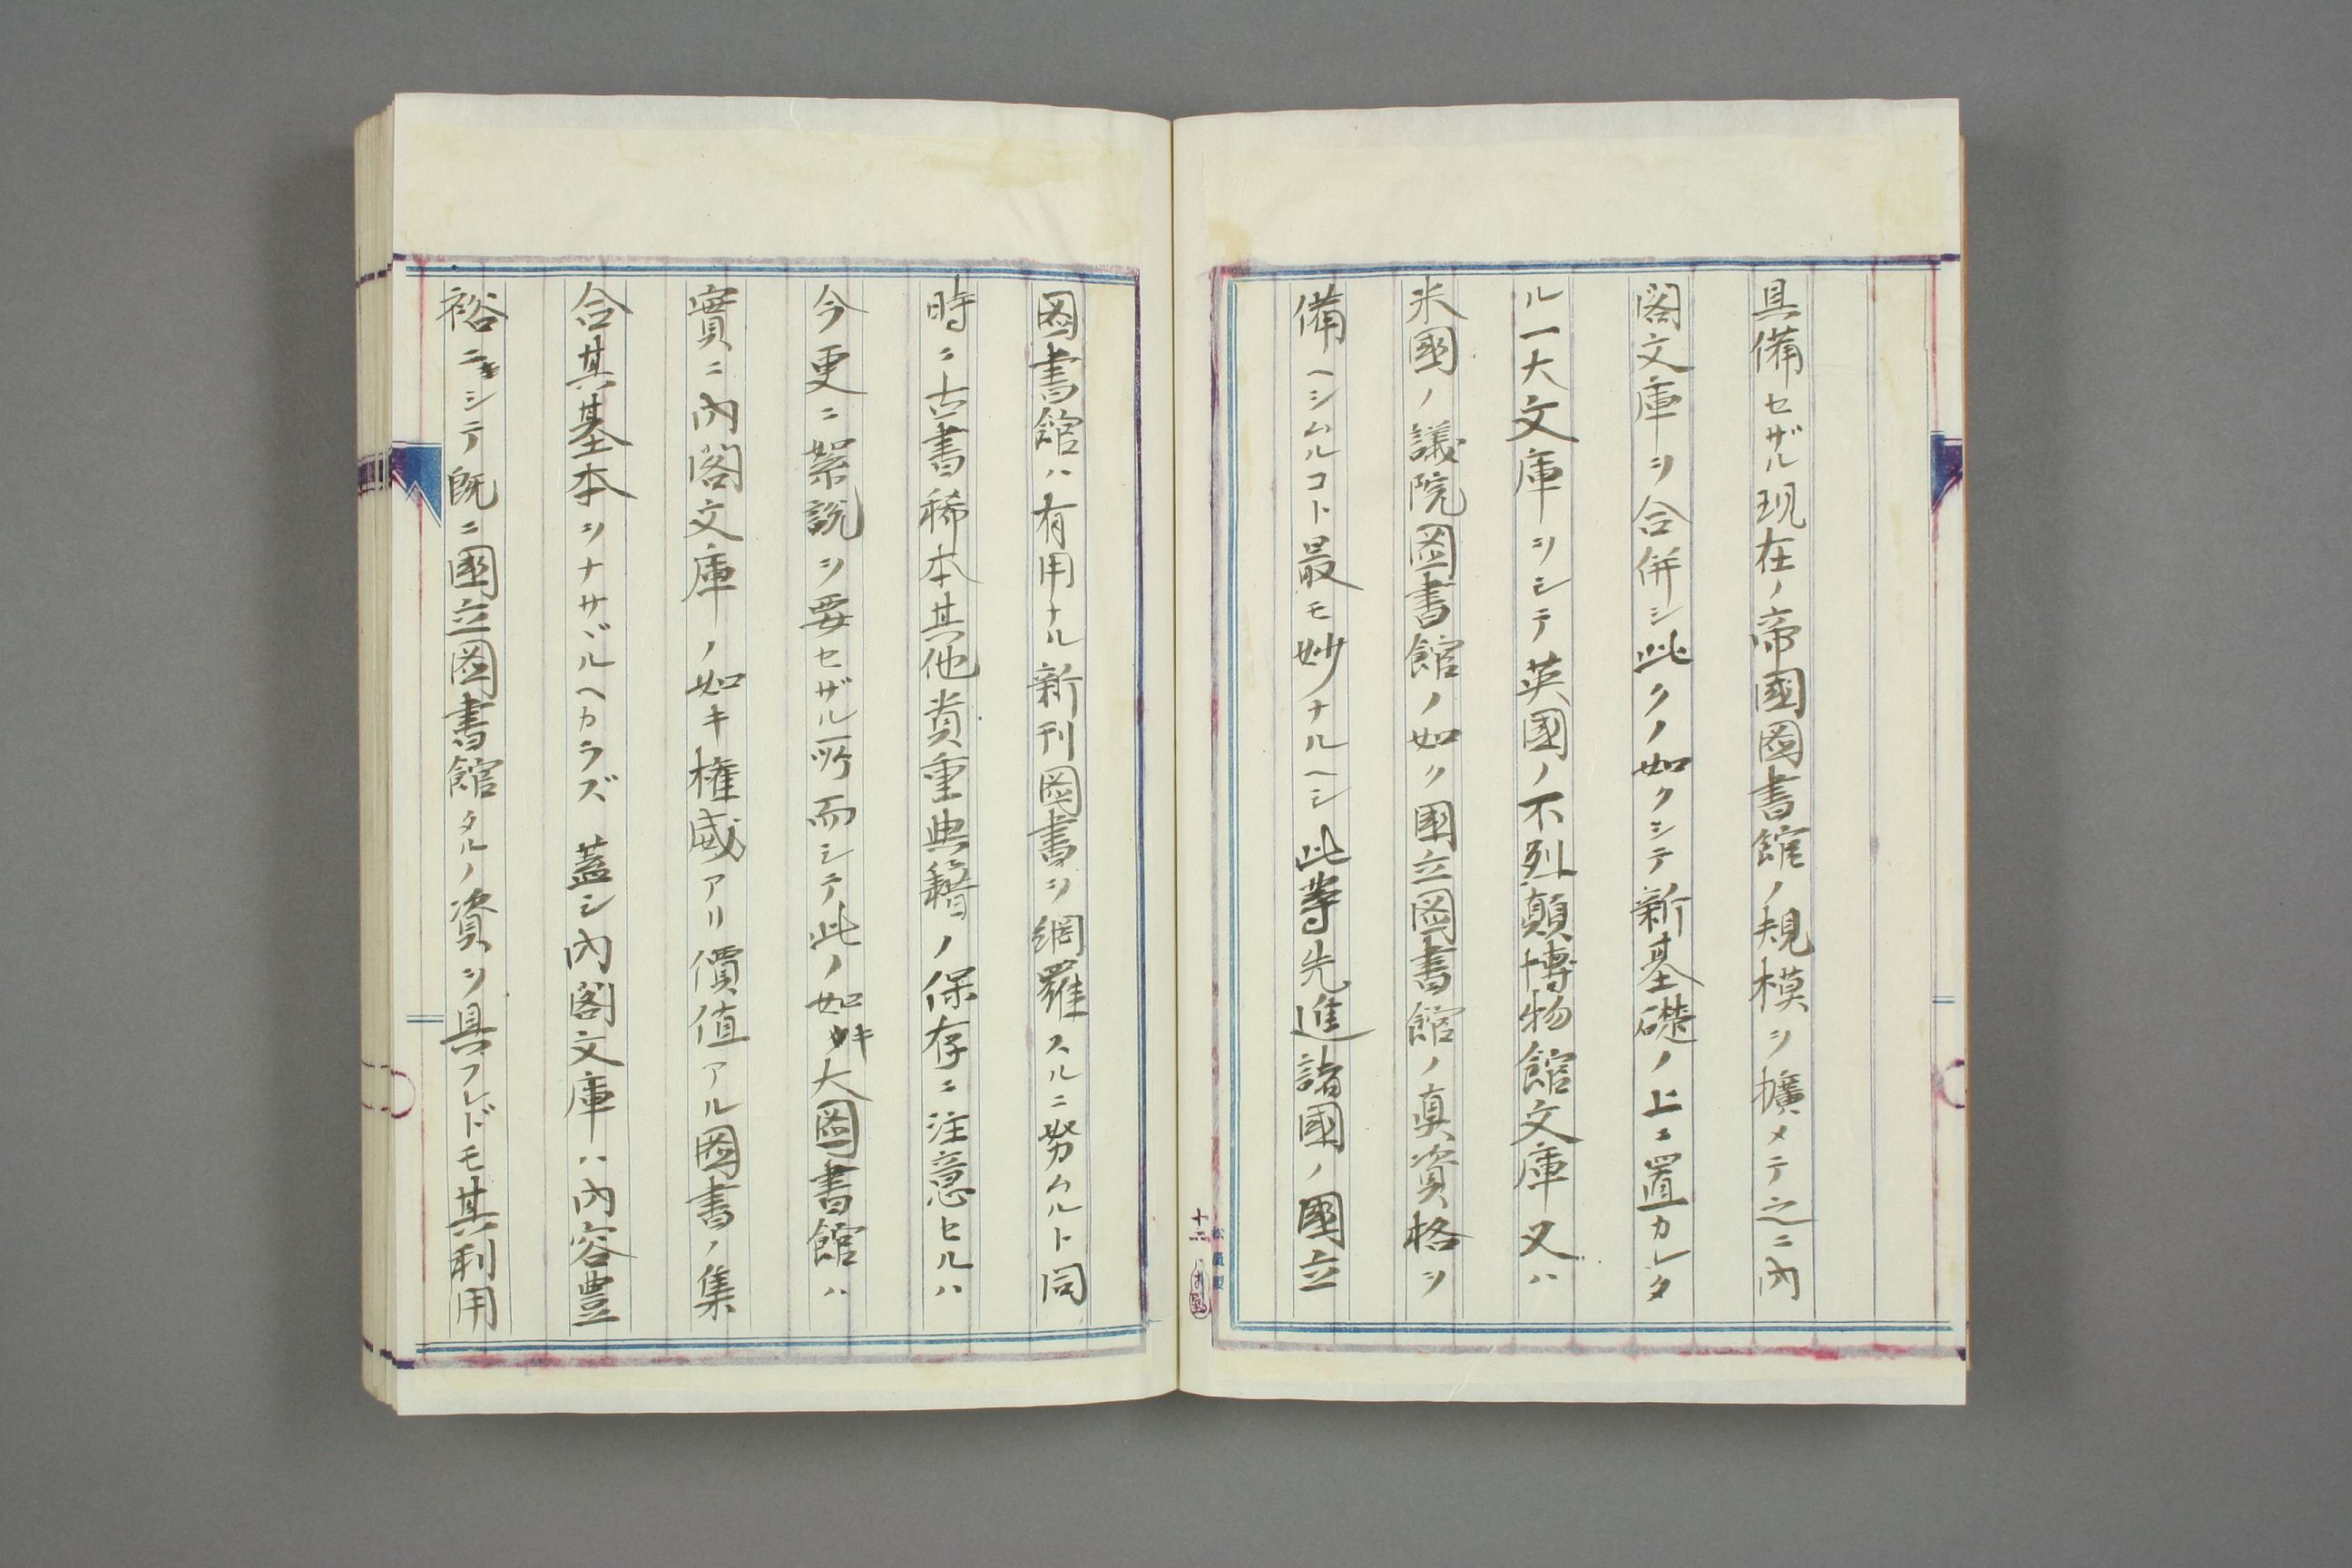 具備セザル現在ノ帝國圖書館ノ規模ヲ擴メテ之ニ内
閣文庫ヲ合併シ此クノ如クシテ新基礎ノ上ニ置カレタ
ル一大文庫ヲシテ英國ノ不列顛博物館文庫又ハ
米國ノ議院圖書館ノ如ク國立圖書館ノ真資格ヲ
備ヘシムルコト最モ妙ナルヘシ此等先進諸國ノ國立
十二
圖書館ハ有用ナル新刊圖書ヲ網羅スルニ努ムルト同
時ニ古書稀本其他貴重典籍ノ保存ニ注意セルハ
今更ニ絮説ヲ要セザル所而シテ此ノ如キ大圖書館ハ
實ニ内閣文庫ノ如キ権威アリ價値アル圖書ノ集
合其基本ヲナサヾルヘカラズ蓋シ内閣文庫ハ内容豐
裕ニシテ既ニ國立圖書館タルノ資ヲ具フレドモ其利用